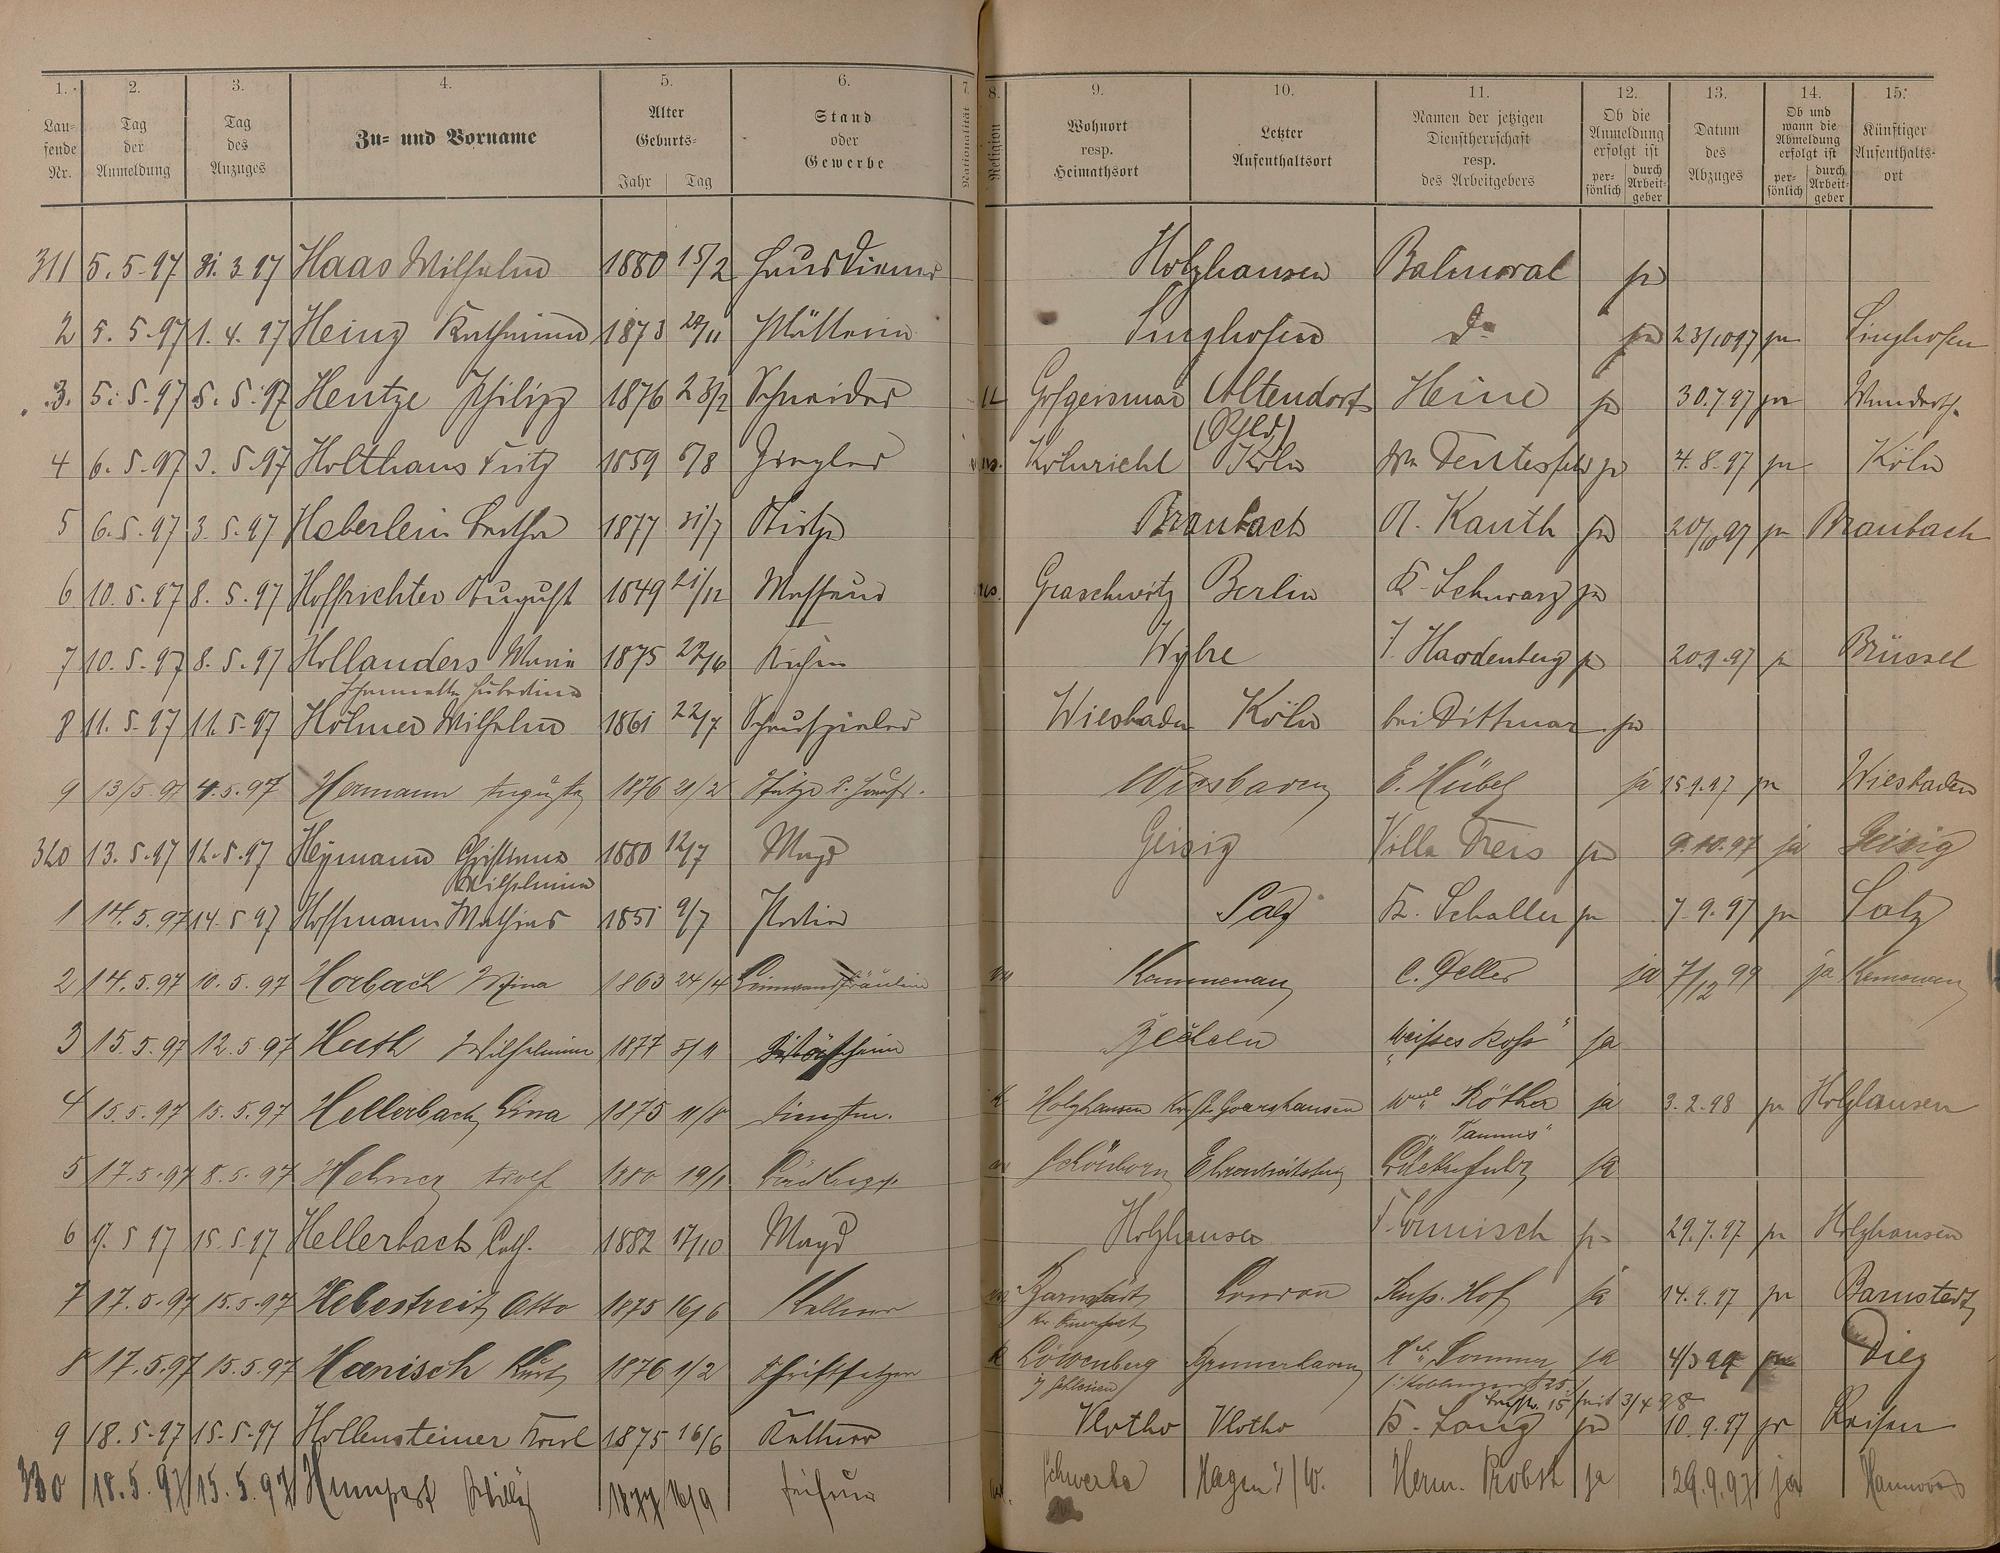 1. 2. 3. 4. 5. 6. 7. 8. 9. 10. 11. 12. 13. 14. 15.
Laufende Nr.
Tag der Anmeldung
Tag des Anzuges
Zu- und Vorname
Alter Geburts- Jahr Tag
Stand oder Gewerbe
Nationalität
Religion
Wohnort resp. Heimathsort
Letzter Aufenthaltsort
Namen der jetzigen Dienstherrschaft resp. des Arbeitgebers
Ob die Anmeldung erfolgt ist persönlich durch Arbeitgeber
Datum des Abzuges
Ob und wann die Abmeldung erfolgt ist persönlich durch Arbeitgeber
Künftiger Aufenthaltsort
311 5.5.97 31.3.97 Haas Wilhelm 1880 15/2 Hausdiener Holzhausen Balmoral ja
2 5.5.97 1.4.97 Heinz Katharina 1873 Plätterin Singhofen do ja 23/10 97 ja Singhofen
3. 5.5.97 5.5.97 Hentze Philipp 1876 23/2 Schneider Hofgeismar Altendorf Heine ja 30.7.97 ja
4 6.5.97 3.5.97 Holthaus Fritz 1859 6/8 Ziegler Köln ja 4.8.97 ja Köln
5 6.5.97 3.5.97 Haberlein Bertha 1877 31/7 Stütze Braubach A. Kauth ja 20/10 97 ja Braubach
6 10.5.97 8.5.97 Hoffrichter August 1849 21/12 Masseur Graschwitz Berlin Schwarz ja
7 10.5.97 8.5.97 Hollanders Maria 1875 Köchin Wylre J. Hardenberg ja 20.9.97 ja Brüssel
Hubertina
8 11.5.97 11.5.97 Holmer Wilhelm 1861 22/7 Schauspieler Wiesbaden Köln bei Dittmar ja
9 13/5.97 4.5.97 Hermann Auguste 1876 21/2 Stütze d. Hausfr. Wiesbaden E. Hübel ja 15.9.97 ja Wiesbaden
320 13.5.97 12.5.97 Heymann Christiana 1880 12/7 Magd Geisig Villa Treis ja 9.10.97 ja Geisig
Wilhelmina
1 14.5.97 14.5.97 Hoffmann Mathias 1851 9/7 Portier Salz Schaller ja 7.9.97 ja Salz
2 14.5.97 10.5.97 Horbach Mina 1863 24/4 Kemmenau C. Deller ja 7/12 99 ja Kemenau
3 15.5.97 12.5.97 Huth Wilhelmine 1877 5/11 Becheln "weißes Roß" ja
4 15.5.97 15.5.97 Hellerbach Lina 1875 11/8 Dienstm. Holzhausen St. Goarshausen Röther ja 3.2.98 ja Holzhausen
"Taunus"
5 17.5.97 8.5.97 Adolf 1880 19/1 Schönborn Ehrenbreitstein ja
6 17.5.97 15.5.97 Hellerbach Cath. 1882 17/10 Magd Holzhausen ja 29.7.97 ja Holzhausen
7 17.5.97 15.5.97 Hebestreit Otto 1875 16/6 Kellner Barnstädt London Russ. Hof ja 14.9.97 ja Barnstedt
Kr. Querfurt
8 17.5.97 15.5.97 Hanisch Kurt 1876 1/2 Schriftsetzer Löwenberg Bremerhaven Sommer ja 4/3 99 Diez
i/ Schlesien
seit 3/4 98
9 18.5.97 15.5.97 Hollensteiner Karl 1875 16/6 Kellner Vlotho Vlotho Lang ja 10.9.97 ja Reisen
330 18.5.97 15.5.97 Willy 1877 16/9 Friseur Schwerte Hagen i/W. Herm. Probst ja 29.9.97 ja Hannover